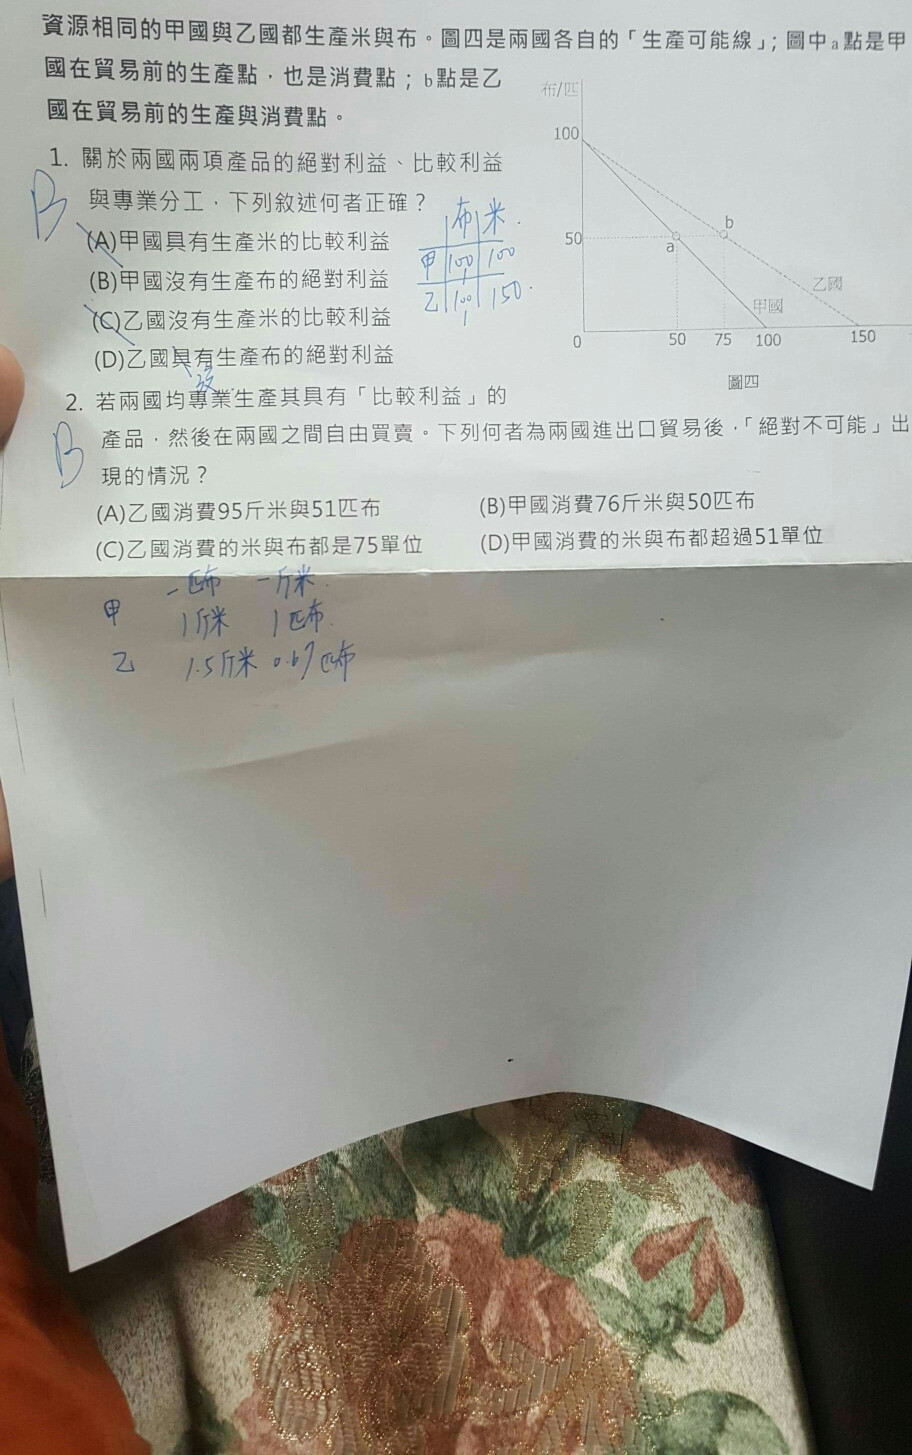 資源相同的甲國與乙國都生產米與布。圖四是兩國各自的「生產可能線」；圖中a點是甲
國在貿易前的生產點，也是消費點；b點是乙
國在貿易前的生產與消費點。
1. 關於兩國兩項產品的絕對利益、比較利益
與專業分工，下列敘述何者正確？
B
(A)甲國具有生產米的比較利益
(B)甲國沒有生產布的絕對利益
(C)乙國沒有生產米的比較利益
(D)乙國具有生產布的絕對利益
沒
布 米
甲 100 100
乙 100 150
布/匹
100
50
a
b
甲國
乙國
0 50 75 100 150
圖四
2. 若兩國均專業生產其具有「比較利益」的
B
產品，然後在兩國之間自由買賣。下列何者為兩國進出口貿易後，「絕對不可能」出
現的情況？
(A)乙國消費95斤米與51匹布 (B)甲國消費76斤米與50匹布
(C)乙國消費的米與布都是75單位 (D)甲國消費的米與布都超過51單位
一匹布 一斤米
甲 1斤米 1匹布
乙 1.5斤米 0.67匹布